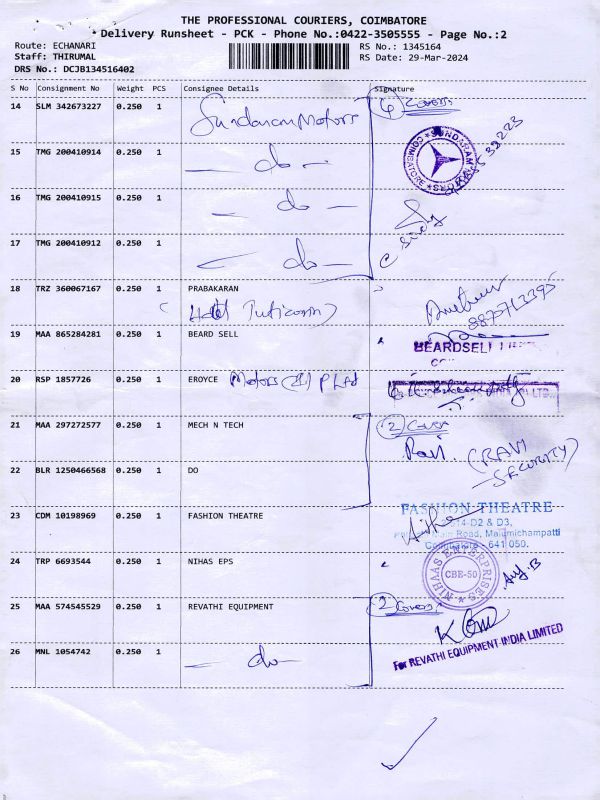 THE PROFESSIONAL COURIERS, COIMBATORE
Delivery Runsheet - PCK - Phone No.:0422-3505555 - Page No.:2
Route: ECHANARI
RS No.: 1345164
Staff: THIRUMAL
RS Date: 29-Mar-2024
DRS No.: DCJB134516402
S No Consignment No Weight PCS Consignee Details Signature
14 SLM 342673227 0.250 1 Sundaram Motors Covers
15 TMG 200410914 0.250 1 — do —
SUNDARAM MOTORS COIMBATORE
16 TMG 200410915 0.250 1 — do —
17 TMG 200410912 0.250 1 — do —
18 TRZ 360067167 0.250 1 PRABAKARAN
(Hotel Tuticorin)
8870713395
19 MAA 865284281 0.250 1 BEARD SELL
BEARDSELL
20 RSP 1857726 0.250 1 EROYCE Motors P Ltd
21 MAA 297272577 0.250 1 MECH N TECH (2) Cover
Ravi (RAVI
SECURITY)
22 BLR 1250466568 0.250 1 DO
23 CDM 10198969 0.250 1 FASHION THEATRE
FASHION THEATRE
D2 & D3,
Main Road, Malumichampatti
Coimbatore - 641 050.
24 TRP 6693544 0.250 1 NIHAS EPS
NIHAAS ENTERPRISES CBE-50
25 MAA 574545529 0.250 1 REVATHI EQUIPMENT (2) Covers
For REVATHI EQUIPMENT INDIA LIMITED
26 MNL 1054742 0.250 1 — do —